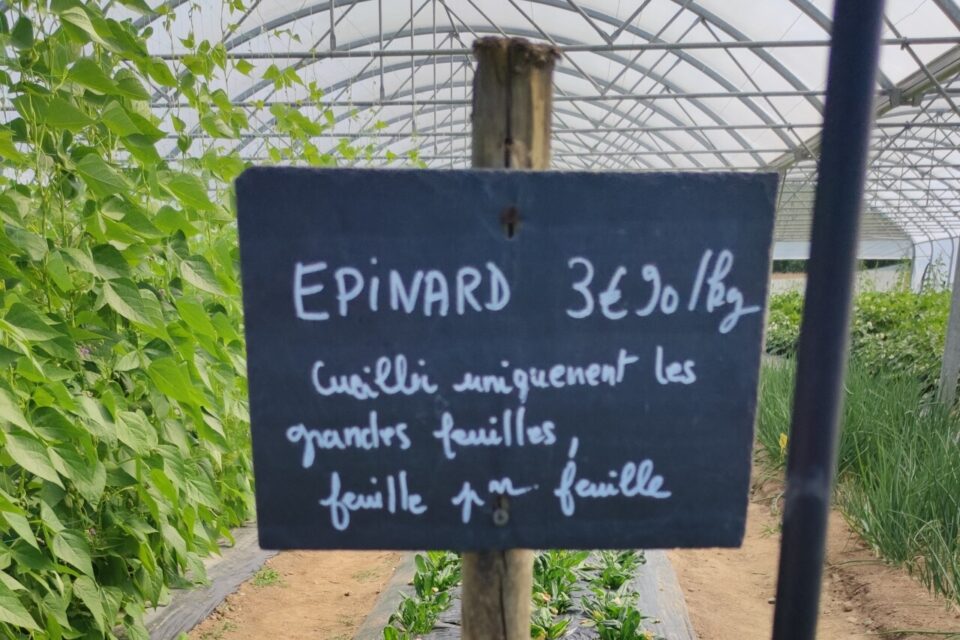 EPINARD 3€90/kg
Cueillir uniquement les
grandes feuilles,
feuille par feuille